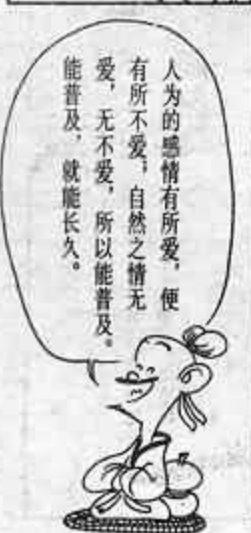 人为的感情有所爱，便
有所不爱；自然之情无
爱，无不爱，所以能普及。
能普及，就能长久。